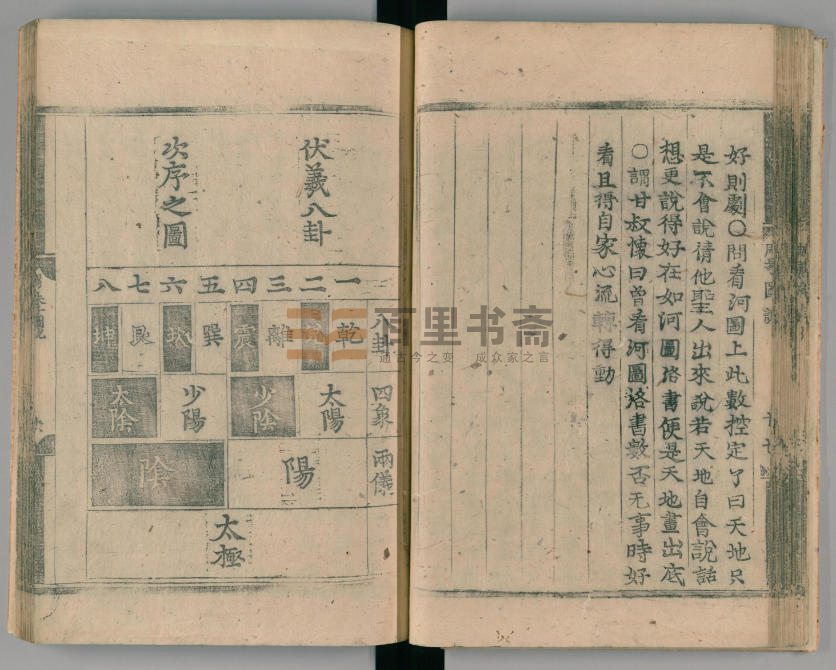 好則劇○問看河圖上此數控定了曰天地只
是不會說請他聖人出來說若天地自會說話
想更說得好在如河圖洛書便是天地畫出底
○謂甘叔懷曰曾看河圖洛書數否无事時好
看且得自家心流轉得動
伏羲八卦
次序之圖
一二三四五六七八
八卦
乾兌離震巽坎艮坤
四象
太陽 少陰 少陽 太陰
兩儀
陽 陰
太極
百里书斋
通古今之变 成众家之言